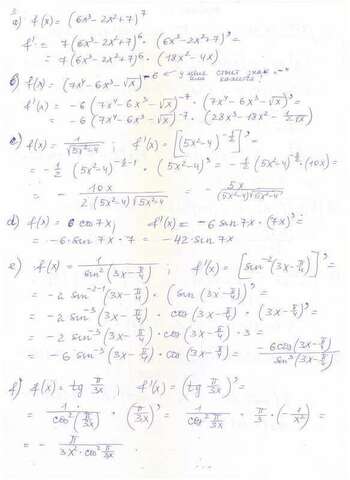 a) f(x) = (6x³ - 2x² + 7)⁷
f' = 7(6x³ - 2x² + 7)⁶ · (6x³ - 2x² + 7)' =
= 7(6x³ - 2x² + 7)⁶ · (18x² - 4x)
б) f(x) = (7x⁴ - 6x³ - √x)⁻⁶ ← у стоит знак "-"
или
f'(x) = -6(7x⁴ - 6x³ - √x)⁻⁷ · (7x⁴ - 6x³ - √x)' =
= -6(7x⁴ - 6x³ - √x)⁻⁷ · (28x³ - 18x² - 1/(2√x))
c) f(x) = 1/√(5x²-4) ; f'(x) = [(5x²-4)^(-1/2)]' =
= -1/2 (5x²-4)^(-1/2-1) · (5x²-4)' = -1/2 (5x²-4)^(-3/2) · (10x) =
= - 10x/(2(5x²-4)√(5x²-4)) = - 5x/((5x²-4)√(5x²-4))
d) f(x) = 6 cos 7x ; f'(x) = -6 sin 7x · (7x)' =
= -6 · sin 7x · 7 = -42 · sin 7x
e) f(x) = 1/sin²(3x - π/4) ; f'(x) = [sin⁻²(3x - π/4)]' =
= -2 sin⁻²⁻¹(3x - π/4) · (sin(3x - π/4))' =
= -2 sin⁻³(3x - π/4) · cos(3x - π/4) · (3x - π/4)' =
= -2 sin⁻³(3x - π/4) · cos(3x - π/4) · 3 =
= -6 sin⁻³(3x - π/4) · cos(3x - π/4) = -6cos(3x - π/4)/sin³(3x - π/4)
f) f(x) = tg π/3x ; f'(x) = (tg π/3x)' =
= 1/cos²(π/3x) · (π/3x)' = 1/cos² π/3x · π/3 · (-1/x²) =
= - π/(3x² · cos² π/3x)